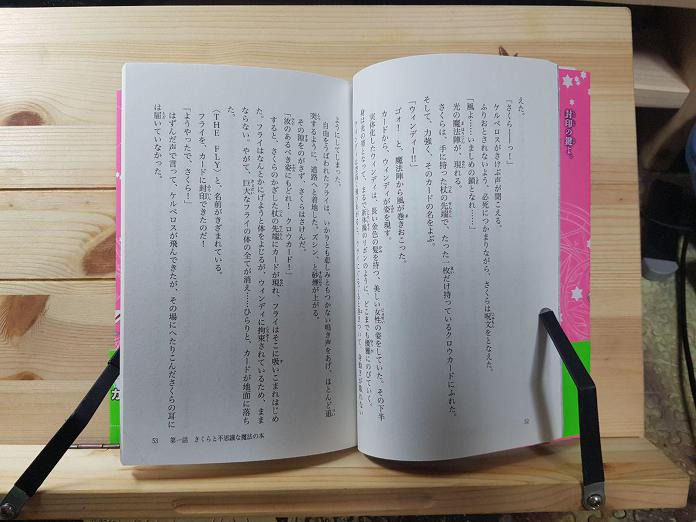 封印の鍵よ。
えた。
「さくらーーっ！」
ケルベロスのさけぶ声が聞こえる。
ふりおとされないよう、必死につかまりながら、さくらは呪文をとなえた。
「風よ……いましめの鎖となれ……」
光の魔法陣が、現れる。
さくらは、手に持った杖の先端で、たった一枚だけ持っているクロウカードにふれた。
そして、力強く、そのカードの名をよぶ。
「ウィンディ！！」
ゴォ！　と、魔法陣から風が巻きおこった。
カードから、ウィンディが姿を現す。
実体化したウィンディは、長い金色の髪を持つ、美しい女性の姿をしていた。その下半
身は光の帯となって、まるで新体操のリボンのように、どこまでも優雅にのびていく。
52
ようになってしまった。
自由をうばわれたフライは、いかりとも悲しみともつかない鳴き声をあげ、ほとんど道
突するように、道路へと着地した。ズシン、と砂煙が上がる。
その隙をのがさず、さくらはさけんだ。
「汝のあるべき姿にもどれ！　クロウカード！」
すると、さくらのかざした杖の先端にカードが現れ、フライはそこに吸いこまれはじめ
た。フライはなんとかにげようと体をよじるが、ウィンディに拘束されているため、まま
ならない。やがて、巨大なフライの体の全てが消え……ひらりと、カードが地面に落ち
た。
〈ＴＨＥ　ＦＬＹ〉と、名前がきざまれている。
フライを、カードに封印できたのだ！
「ようやったで、さくら！」
はずんだ声で言って、ケルベロスが飛んできたが、その場にへたりこんださくらの耳に
は届いていなかった。
53　第一話　さくらと不思議な魔法の本